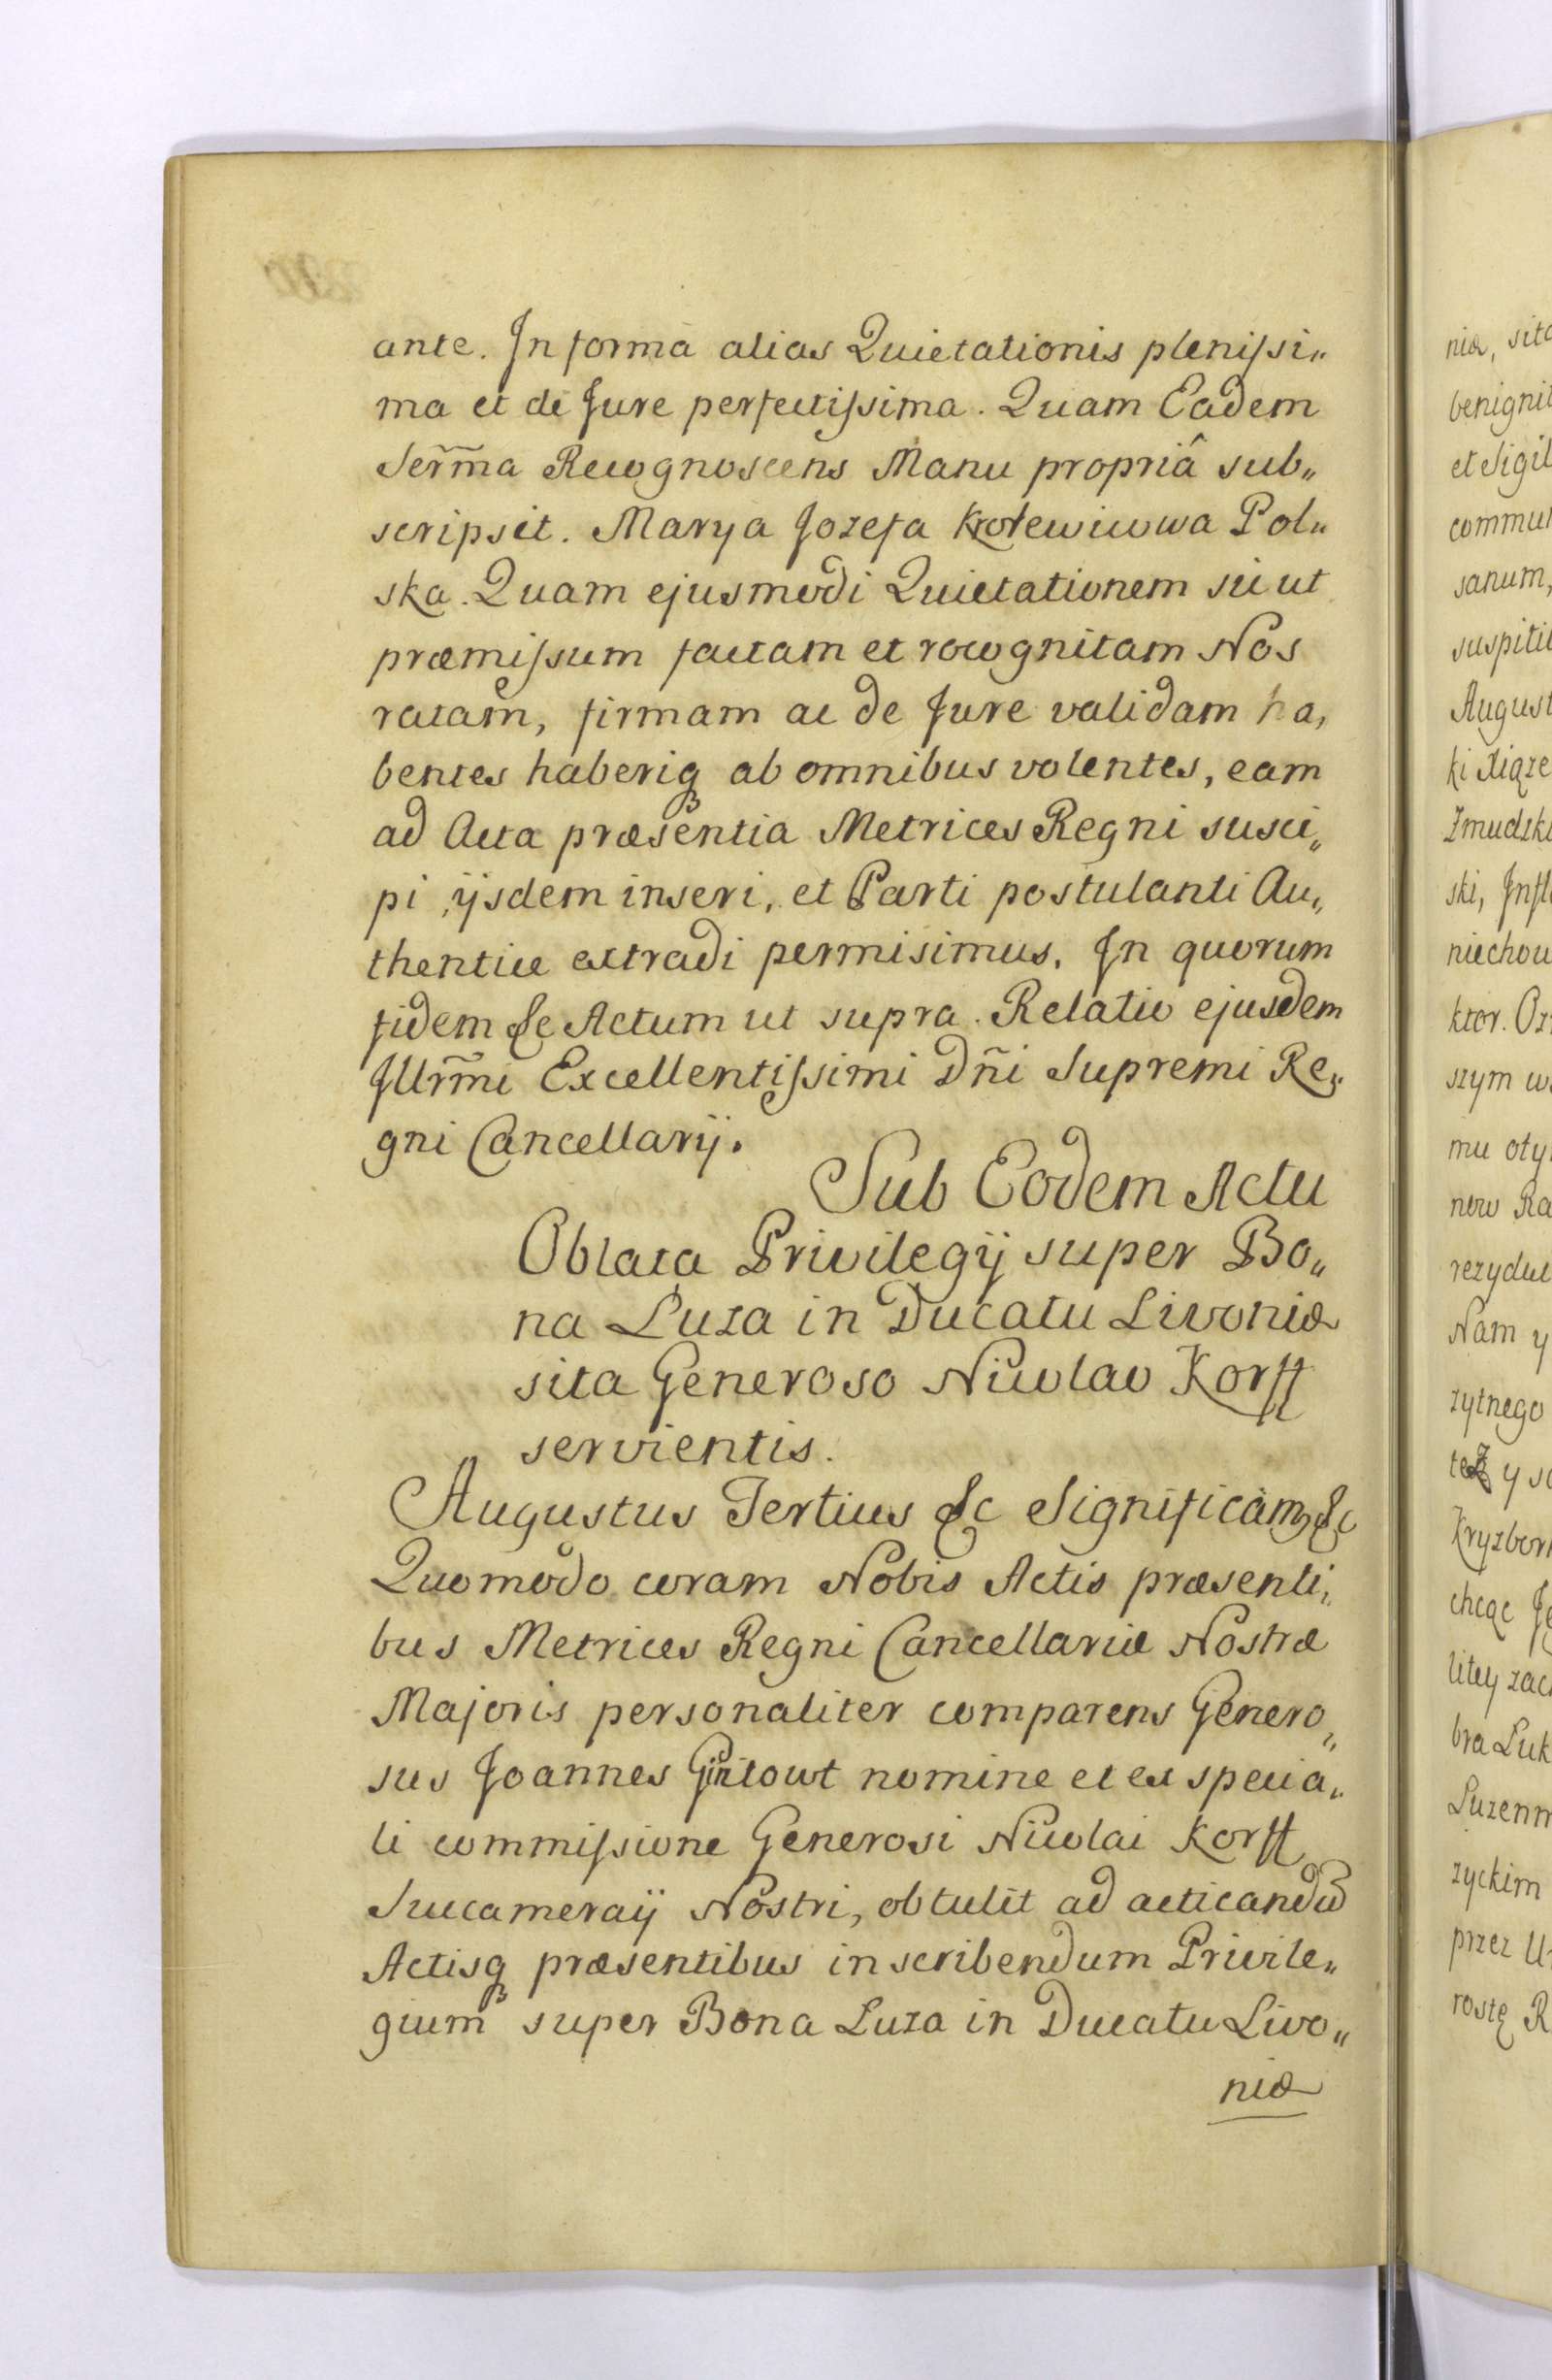 ante. In forma alias Quietationis plenissi„
ma et de Jure perfectissima. Quam Eadem
Serm̃a Recognoscens Manu propriâ sub„
scripsit. Marya Jozefa Krolewicowa Pol„
ska. Quam ejusmodi Quietationem sic ut
præmissum factam et recognitam Nos
ratam, firmam ac de Jure validam ha„
bentes haberiq; ab omnibus volentes, eam
ad Acta præsentia Metrices Regni susci„
pi, ijsdem inseri, et Parti postulanti Au„
thentice extradi permisimus. In quorum
fidem &c Actum ut supra. Relatio ejusdem
Illrm̃i Excellentissimi Dñi Supremi Re„
gni Cancellarij.
Sub Eodem Actu
Oblata Privilegij super Bo„
na Luza in Ducatu Livoniæ
sita Generoso Nicolao Korff
servientis.
Augustus Tertius &c Significam9 &c
Quomodo coram Nobis Actis præsenti„
bus Metrices Regni Cancellariæ Nostræ
Majoris personaliter comparens Genero„
sus Joannes nomine et ex specia„
li commissione Generosi Nicolai Korff
Succameraij Nostri, obtulit ad acticandū
Actisq; præsentibus inscribendum Privile„
gium super Bona Luza in Ducatu Livo„
niæ
niæ, sita
benignit
et Sigil
commun
sanum,
suspiti
August
ki Xiąże
Zmudzki
ski, Infl
niechow
ktor. Oz
szym w
mu oty
now Ra
rezydue
Nam y
zytnego
tez y
Kryzbor
chcąc
litey zac
bra Luk
Luzenn
zyckim
przez U
rostę R